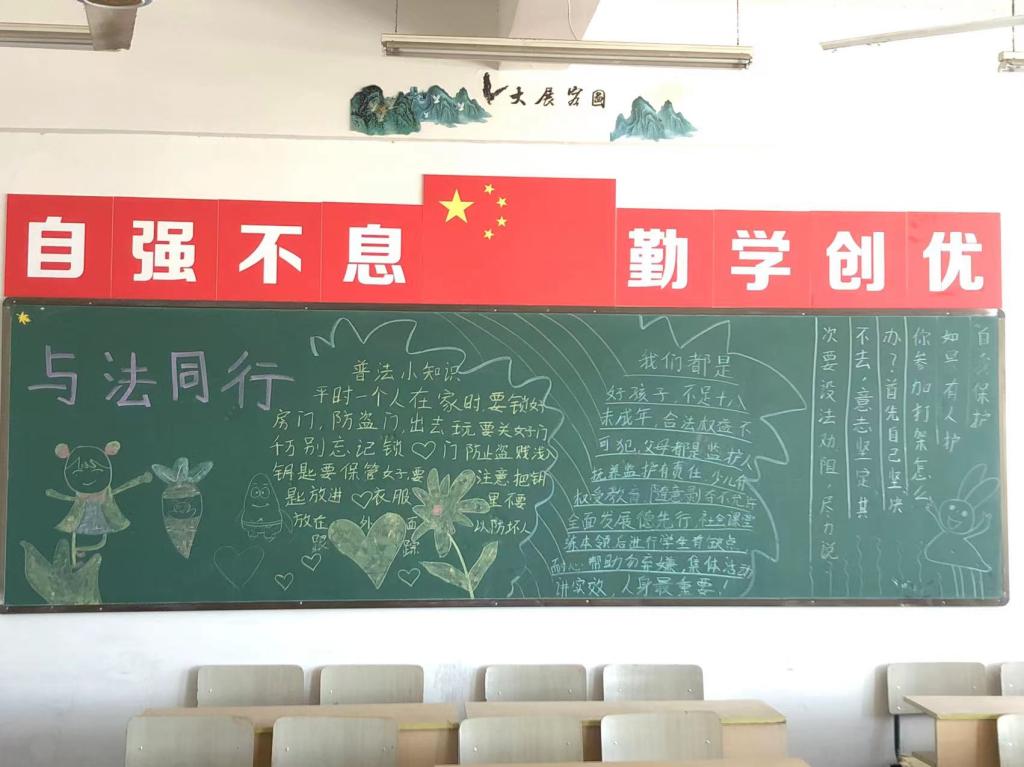 大展宏图
自强不息 勤学创优
与法同行
普法小知识
平时一个人在家时,要锁好
房门,防盗门,出去玩要关好门
千万别忘记锁门防止盗贼
钥匙要保管好,要注意把钥
匙放进衣服里
放在外面以防坏人
跟踪
我们都是
好孩子,不足十八
未成年,合法权益不
可犯,父母都是监护人
抚养监护有责任,少儿有
权受教育,随意剥夺不允许
全面发展德先行,社会课堂
练本领后进行学生有缺点
耐心帮助勿弃嫌,集体活动
讲实效,人身最重要!
自我保护
如果有人护
你参加打架怎么
办?首先自己坚决
不去,意志坚定,其
次要没法劝阻,尽力说